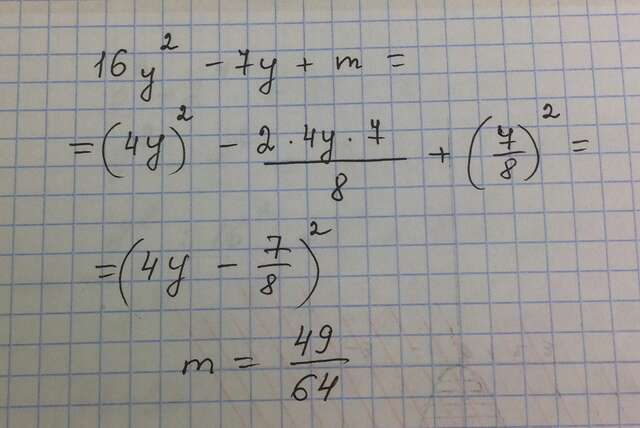 16y² - 7y + m =
= (4y)² - 2·4y·7/8 + (7/8)² =
= (4y - 7/8)²
m = 49/64